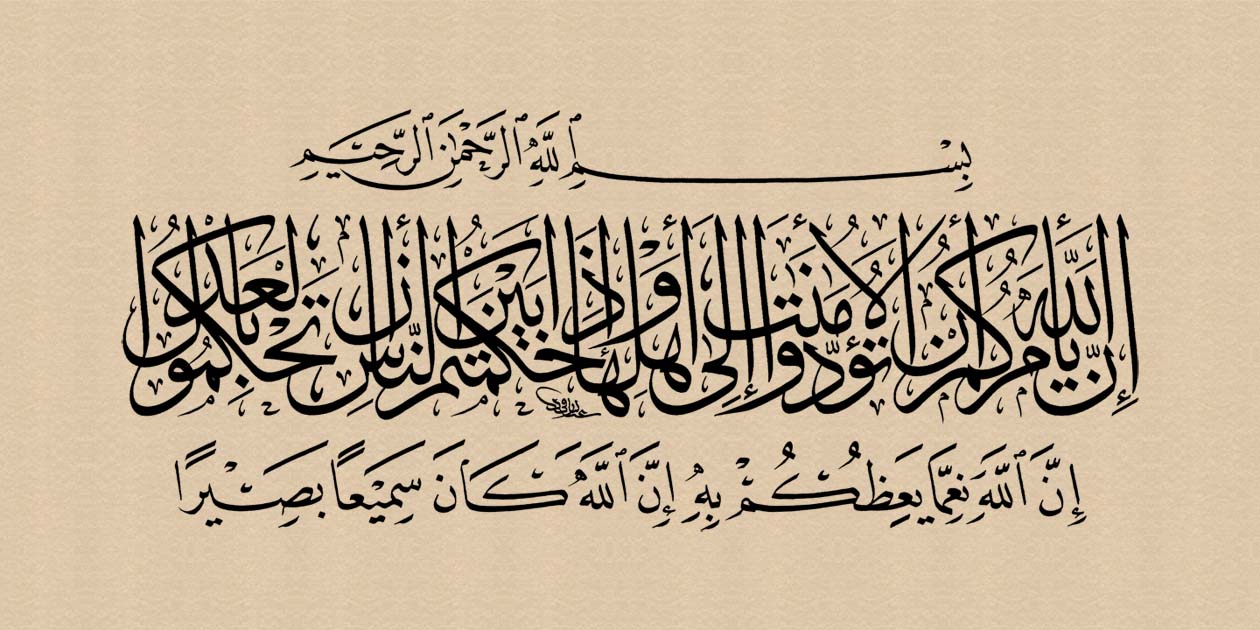 بِسْمِ ٱللَّهِ ٱلرَّحْمَٰنِ ٱلرَّحِيمِ
إِنَّ اللَّهَ يَأْمُرُكُمْ أَنْ تُؤَدُّوا الْأَمَانَاتِ إِلَى أَهْلِهَا وَإِذَا حَكَمْتُمْ بَيْنَ النَّاسِ أَنْ تَحْكُمُوا بِالْعَدْلِ
إِنَّ ٱللَّهَ نِعِمَّا يَعِظُكُمْ بِهِ إِنَّ ٱللَّهَ كَانَ سَمِيعًا بَصِيرًا